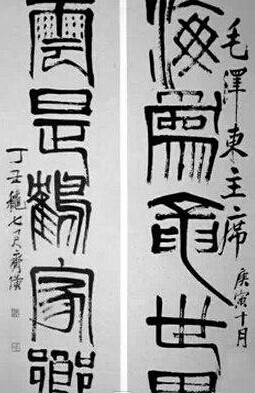 毛澤東主席
庚寅十月
海為龍世界
雲是鶴家鄉
丁丑穐七尺齊璜